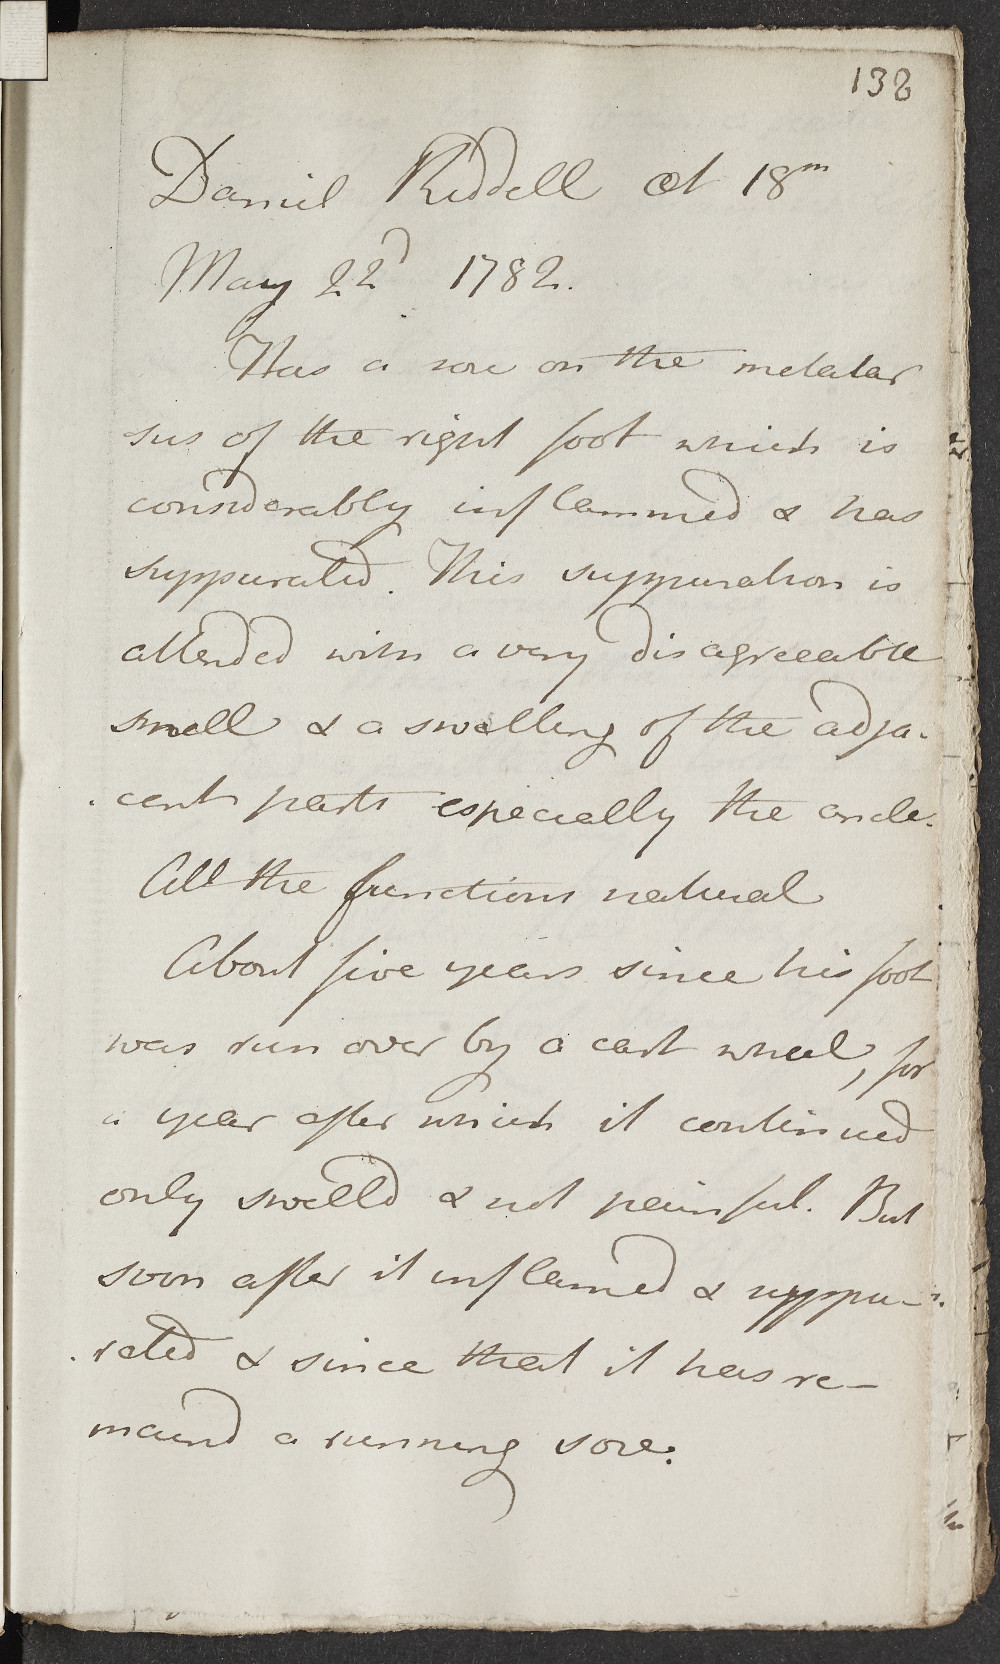 138
Daniel Riddell æt 18m
May 22d 1782.
Has a sore on the metatar
sus of the right foot which is
considerably inflammed & has
suppurated. This suppuration is
attended with a very disagreeable
smell & a swelling of the adja-
cent parts especially the ancle.
All the functions natural
About five years since his foot
was run over by a cart wheel, for
a year after which it continued
only swelld & not painful. But
soon after it inflamed & suppu-
rated & since that it has re-
maind a running sore.